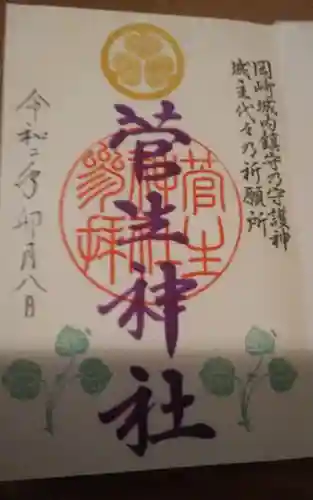 岡崎城内鎮守乃守護神
城主代々乃祈願所
菅生神社
令和二年卯月八日
菅生
神社
参拝